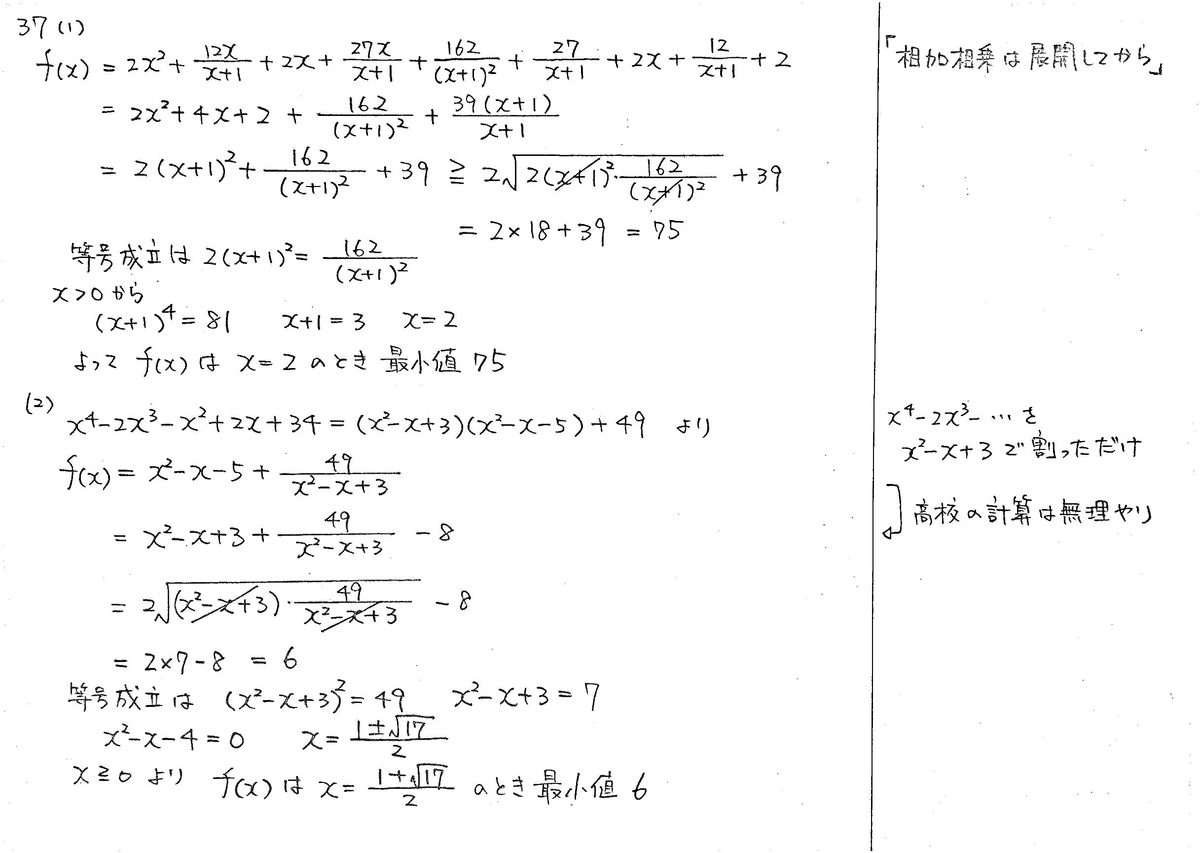 37 (1)
f(x) = 2x² + 12x/(x+1) + 2x + 27x/(x+1) + 162/(x+1)² + 27/(x+1) + 2x + 12/(x+1) + 2
= 2x² + 4x + 2 + 162/(x+1)² + 39(x+1)/(x+1)
= 2(x+1)² + 162/(x+1)² + 39 ≧ 2√(2(x+1)²・162/(x+1)²) + 39
= 2×18+39 = 75
等号成立は 2(x+1)² = 162/(x+1)²
x>0 から
(x+1)⁴ = 81 x+1 = 3 x = 2
よって f(x) は x=2 のとき 最小値 75
(2)
x⁴-2x³-x²+2x+34 = (x²-x+3)(x²-x-5)+49 より
f(x) = x²-x-5 + 49/(x²-x+3)
= x²-x+3 + 49/(x²-x+3) - 8
= 2√((x²-x+3)・49/(x²-x+3)) - 8
= 2×7-8 = 6
等号成立は (x²-x+3)² = 49 x²-x+3 = 7
x²-x-4 = 0 x = (1±√17)/2
x≧0 より f(x) は x = (1+√17)/2 のとき 最小値 6
「相加相乗は展開してから」
x⁴-2x³-… を
x²-x+3 で割っただけ
高校の計算は無理やり